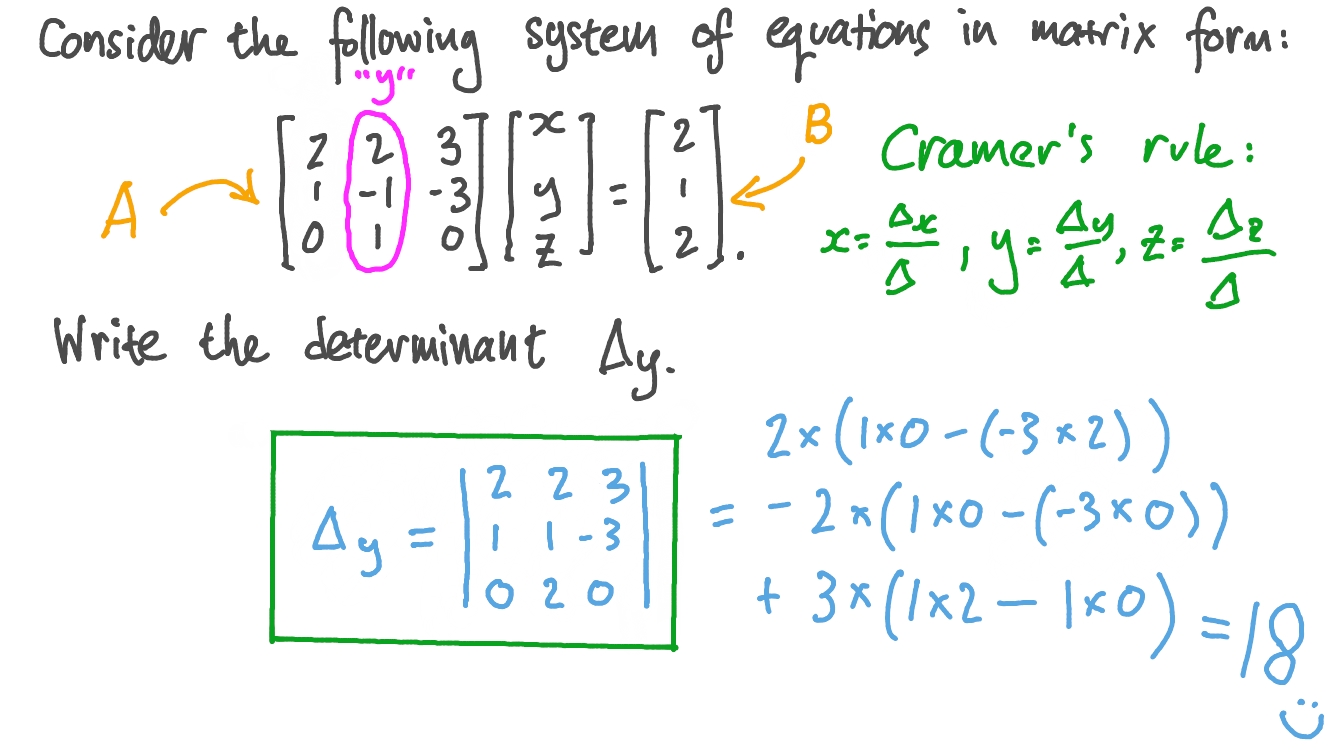 Consider the following system of equations in matrix form:
"y"
A
[2 2 3] [x] [2]
[1 -1 -3] [y] = [1]
[0 1 0] [z] [2].
B
Cramer's rule:
x = Δx/Δ, y = Δy/Δ, z = Δz/Δ
Write the determinant Δy.
|2 2 3|
Δy = |1 1 -3|
|0 2 0|
2×(1×0-(-3×2))
= -2×(1×0-(-3×0))
+ 3×(1×2-1×0) = 18